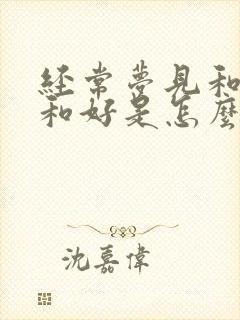 经常夢見和
和好是怎麼
沈嘉偉